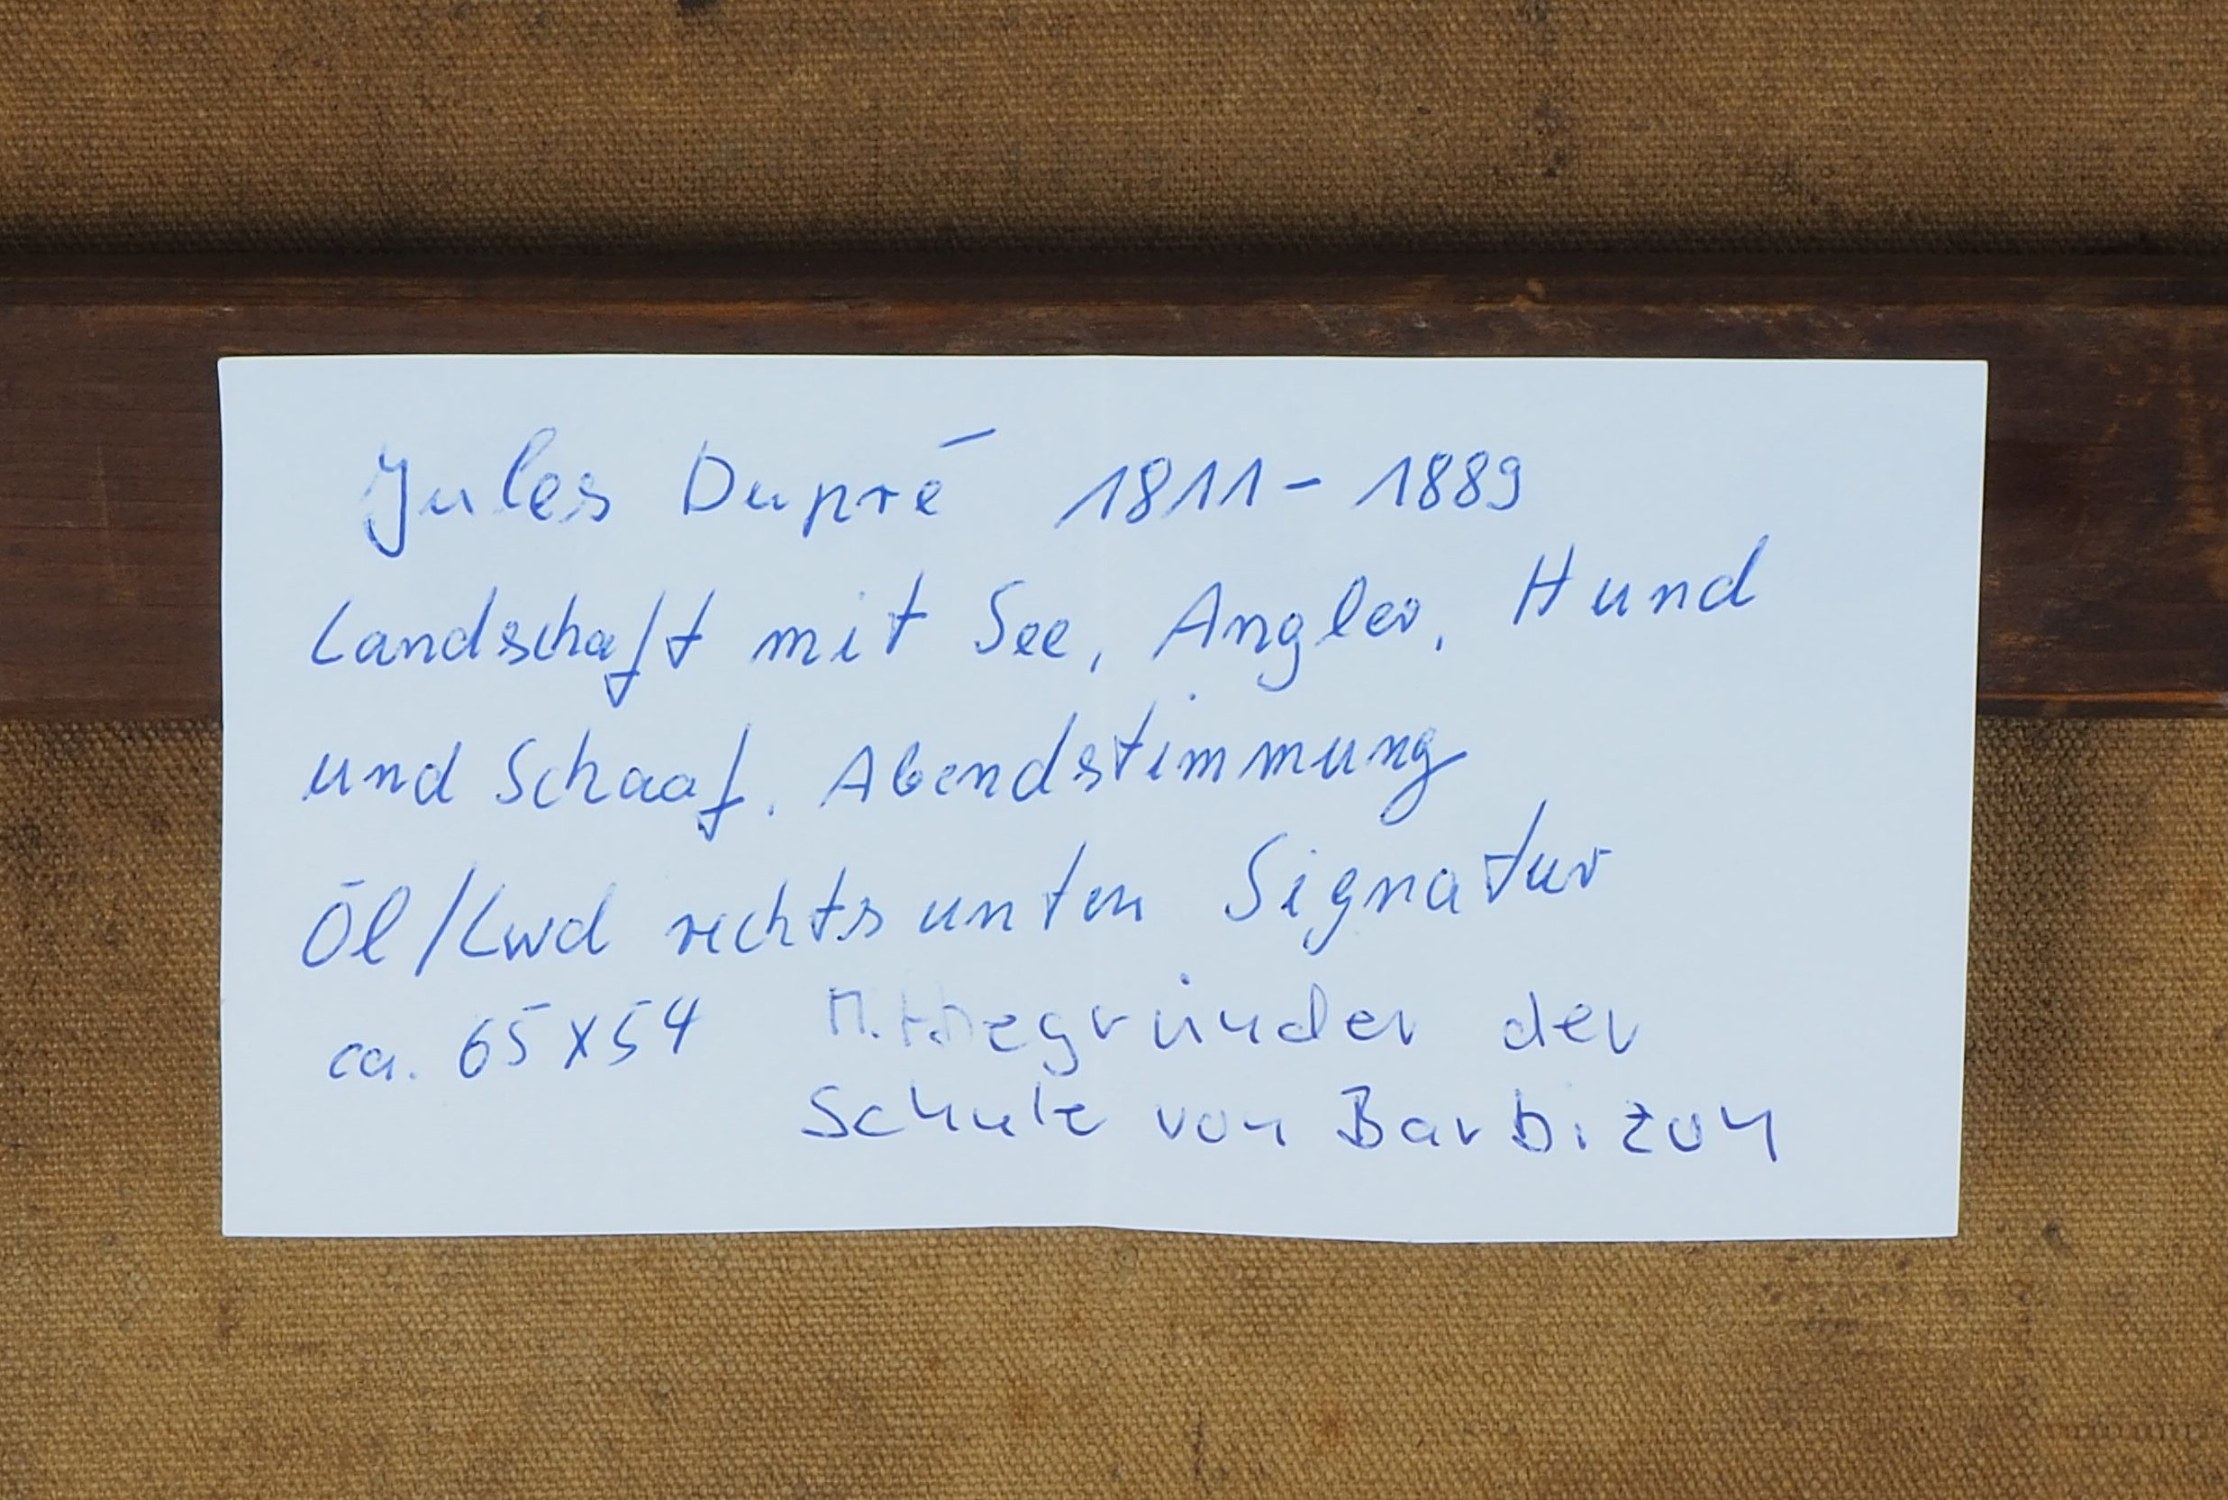 Jules Dupré 1811-1889
Landschaft mit See, Angler, Hund
und Schaaf. Abendstimmung
Öl/Lwd rechts unten Signatur
ca. 65x54 Mitbegründer der
Schule von Barbizon